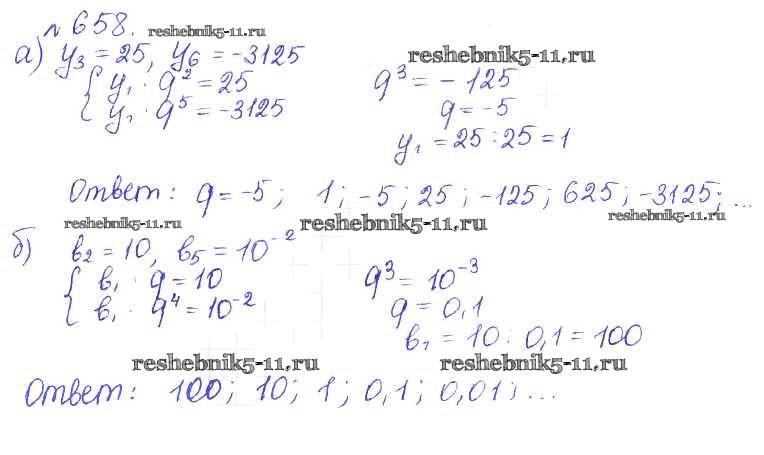 № 658. reshebnik5-11.ru
а) y₃ = 25, y₆ = -3125 reshebnik5-11.ru
{ y₁ · q² = 25 q³ = - 125
{ y₁ · q⁵ = -3125 q = -5
y₁ = 25 : 25 = 1
Ответ: q = -5; 1; -5; 25; -125; 625; -3125; ...
reshebnik5-11.ru reshebnik5-11.ru reshebnik5-11.ru
б) в₂ = 10, в₅ = 10⁻²
{ в₁ · q = 10 q³ = 10⁻³
{ в₁ · q⁴ = 10⁻² q = 0,1
в₁ = 10 : 0,1 = 100
reshebnik5-11.ru reshebnik5-11.ru
Ответ: 100; 10; 1; 0,1; 0,01; ...